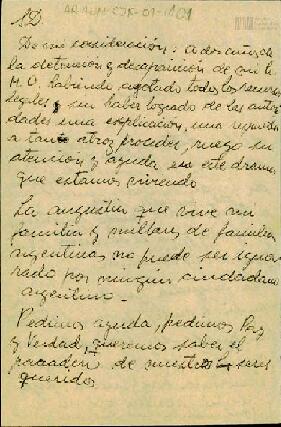 S.D.
De mi consideración: a dos años de
la detención y desaparición de mi h.
M.O. habiendo agotado todos los recursos
legales y sin haber logrado de las autori
dades una explicación, una respuesta
a tanto atroz proceder, ruego su
atención y ayuda en este drama
que estamos viviendo
La angustia que vive mi
familia y millares de familias
argentinas no puede ser ignorado
por ningún ciudadano
argentino.-
Pedimos ayuda, pedimos Paz
y Verdad, queremos saber el
paradero de nuestros seres
queridos